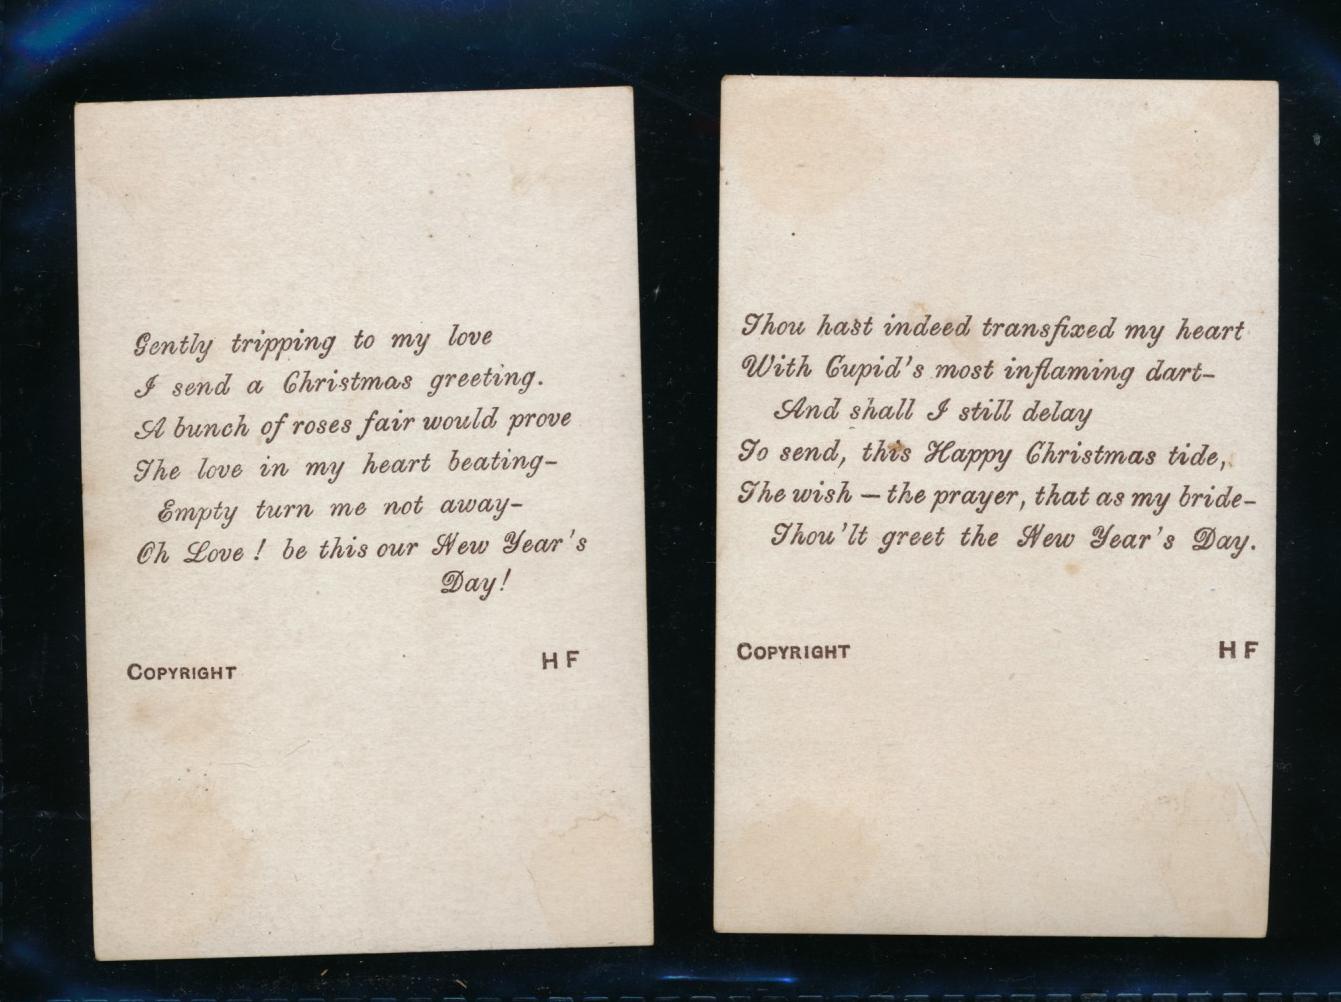 Gently tripping to my love
I send a Christmas greeting.
A bunch of roses fair would prove
The love in my heart beating-
Empty turn me not away-
Oh Love! be this our New Year's
Day!
COPYRIGHT H F
Thou hast indeed transfixed my heart
With Cupid's most inflaming dart-
And shall I still delay
To send, this Happy Christmas tide,
The wish – the prayer, that as my bride-
Thou'lt greet the New Year's Day.
COPYRIGHT H F